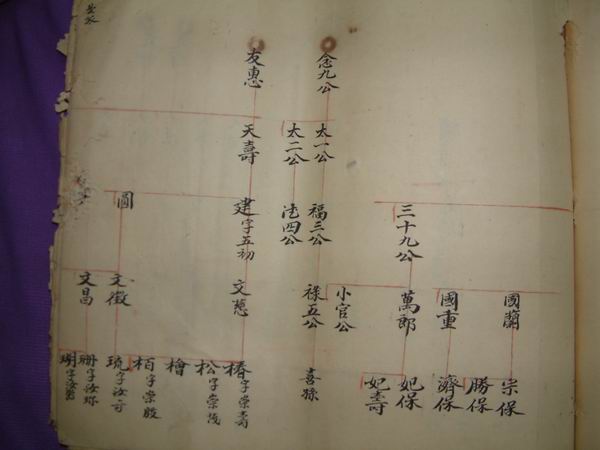 國蘭
宗保
勝保
國重
濟保
三十九公
萬郎
妃保
妃壽
小官公
念九公
太一公
福三公
祿五公
喜孫
太二公
法四公
友惠
天壽
建字五初
文慈
椿字崇壽
松字崇茂
檜
栢字崇殷
圓
文徵
琉字汝奇
文昌
珊字汝珎
瑚字汝